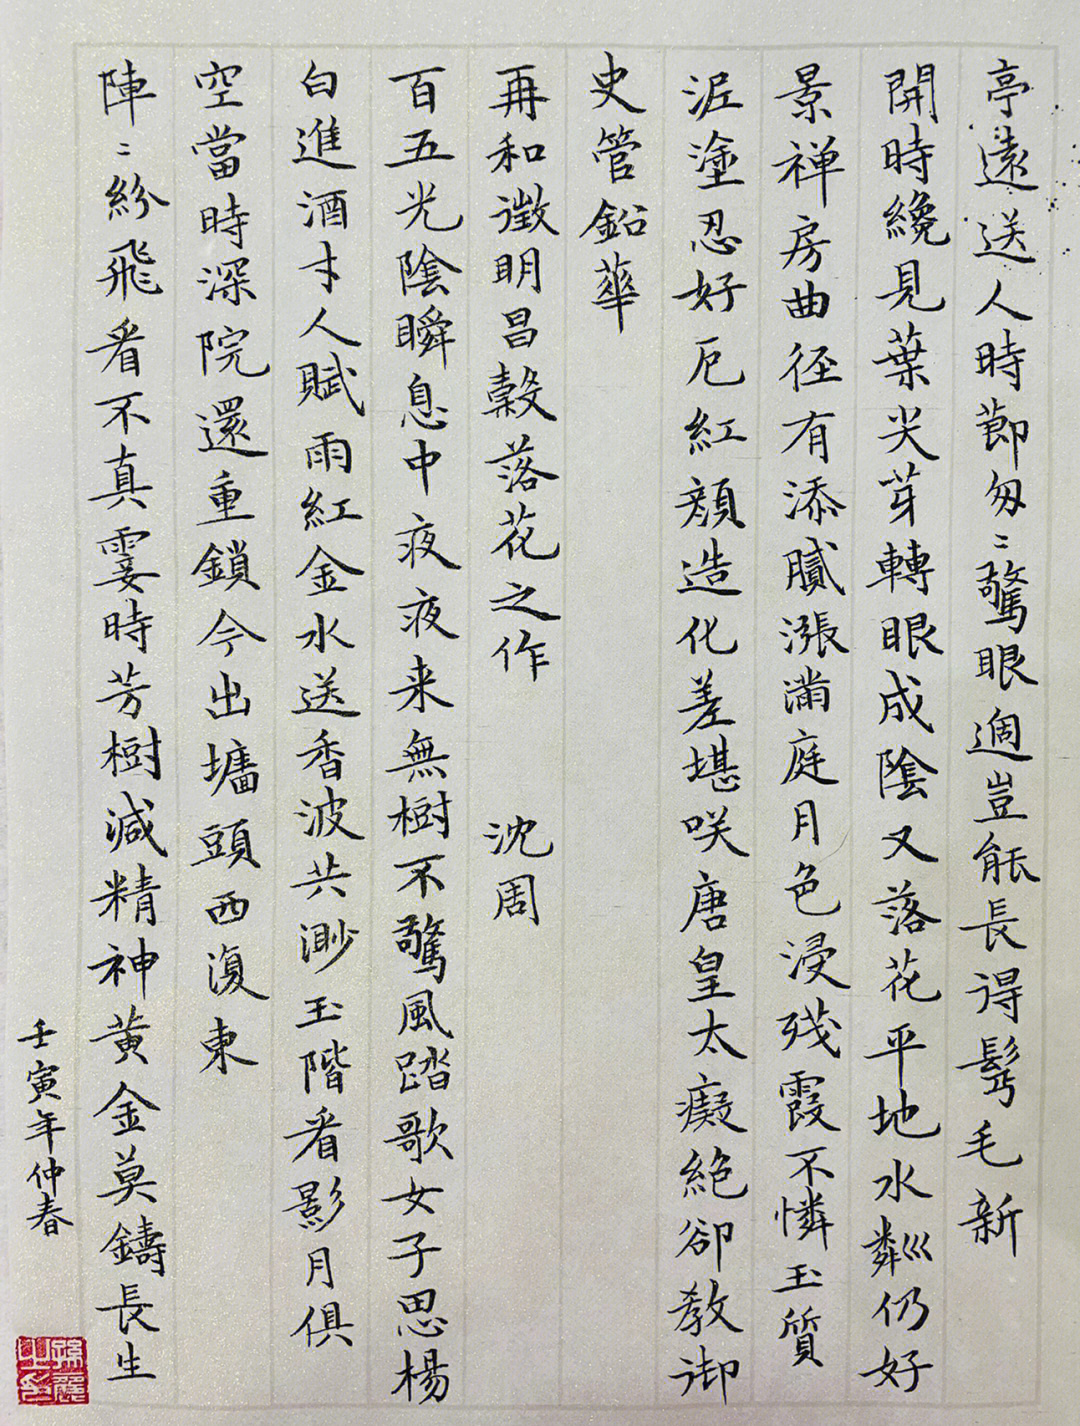 亭遠送人時節匆〻驚眼週豈能長得髩毛新
開時纔見葉尖芽轉眼成陰又落花平地水粼巛仍好
景禅房曲径有添膩漲滿庭月色浸殘霞不憐玉質
泥塗忍好厄紅顏造化差堪咲唐皇太癡絕卻教御
史管鉛華
再和徵明昌穀落花之作 沈周
百五光陰瞬息中夜夜来無樹不驚風踏歌女子思楊
白進酒才人賦雨紅金水送香波共渺玉階看影月俱
空當時深院還重鎖今出墻頭西復東
陣〻紛飛看不真霎時芳樹減精神黄金莫鑄長生
壬寅年仲春